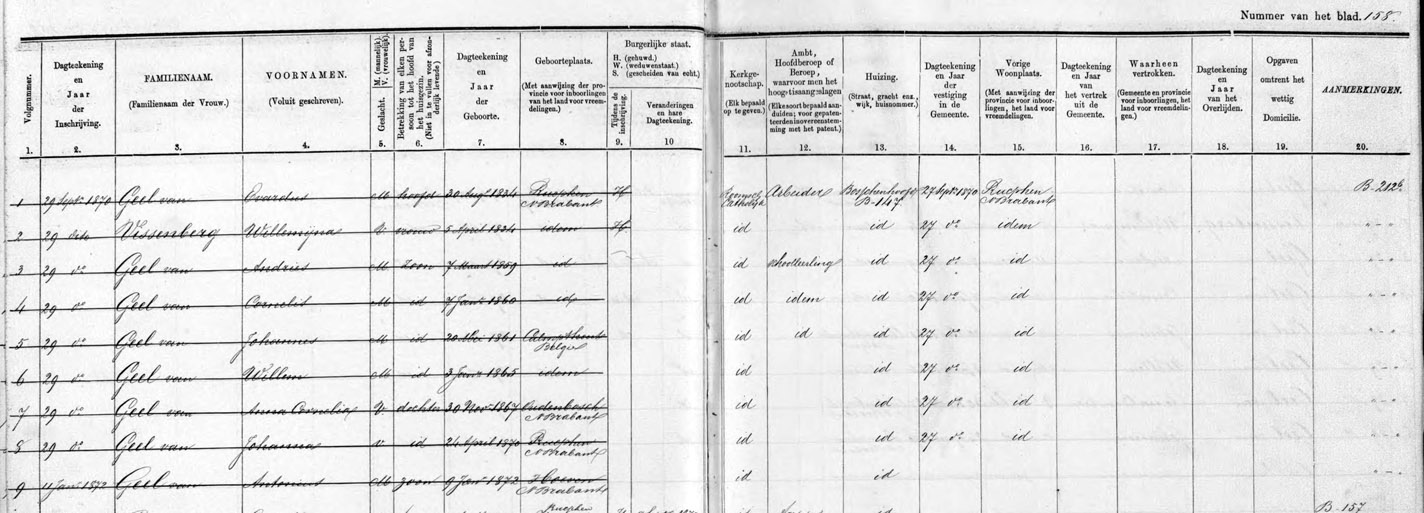 Nummer van het blad. 158.
Volgnummer.
Dagteekening
en
Jaar
der
Inschrijving.
FAMILIENAAM.
(Familienaam der Vrouw.)
VOORNAMEN.
(Voluit geschreven).
Geslacht. M. (mannelijk). V. (vrouwelijk).
Betrekking van elken per-
soon tot het hoofd van
het huisgezin.
(Niet in te vullen voor afzon-
derlijk levende)
Dagteekening
en
Jaar
der
Geboorte.
Geboorteplaats.
(Met aanwijzing der pro-
vincie voor inboorlingen
van het land voor vreem-
delingen.)
Burgerlijke staat.
H. (gehuwd.)
W. (weduwenstaat.)
S. (gescheiden van echt.)
Tijdens de
inschrijving.
Veranderingen
en hare
Dagteekening.
Kerkge-
nootschap.
(Elk bepaald
op te geven.)
Ambt,
Hoofdberoep of
Beroep,
waarvoor men het
hoogst is aangeslagen
Huizing.
(Straat, gracht enz.,
wijk, huisnommer.)
Dagteekening
en Jaar
der
vestiging
in de
Gemeente.
Vorige
Woonplaats.
(Met aanwijzing der
provincie voor inboor-
lingen, het land voor
vreemdelingen.
Dagteekening
en Jaar
van het
vertrek
uit de
Gemeente.
Waarheen
vertrokken.
(Gemeente en provincie
voor inboorlingen, het
land voor vreemdelin-
gen.)
Dagteekening
en Jaar
van het
Overlijden.
Opgaven
omtrent het
wettig
Domicilie.
AANMERKINGEN.
1. 2. 3. 4. 5. 6. 7. 8. 9. 10 11. 12. 13. 14. 15. 16. 17. 18. 19. 20.
1 29 Sept. 1870 Geel van Evardus M hoofd 30 Aug. 1834 Rucphen N Brabant H Roomsch Catholijk Arbeider Bosschenhoofd B-147 27 Sept. 1870 Rucphen N Brabant B-212b
2 29 dito Vissenberg Willemijna V vrouw 5 April 1834 idem H id id 27 do idem
3 29 do Geel van Andries M zoon 7 Maart 1859 id id schoolleerling id 27 do id
4 29 do Geel van Cornelis M id 7 Jan 1860 id id idem id 27 do id
5 29 do Geel van Johannes M id 20 Mei 1861 Calmpthout Belgie id id id 27 do id
6 29 do Geel van Willem M id 3 Jan 1865 idem id id 27 do id
7 29 do Geel van Anna Cornelia V dochter 30 Nov 1867 Oudenbosch N Brabant id id 27 do id
8 29 do Geel van Johanna v id 24 April 1870 Rucphen N Brabant id id 27 do id
9 11 Jan 1872 Geel van Antonius M zoon 9 Jan 1872 Hoeven N Brabant id id
Rucphen
B-157